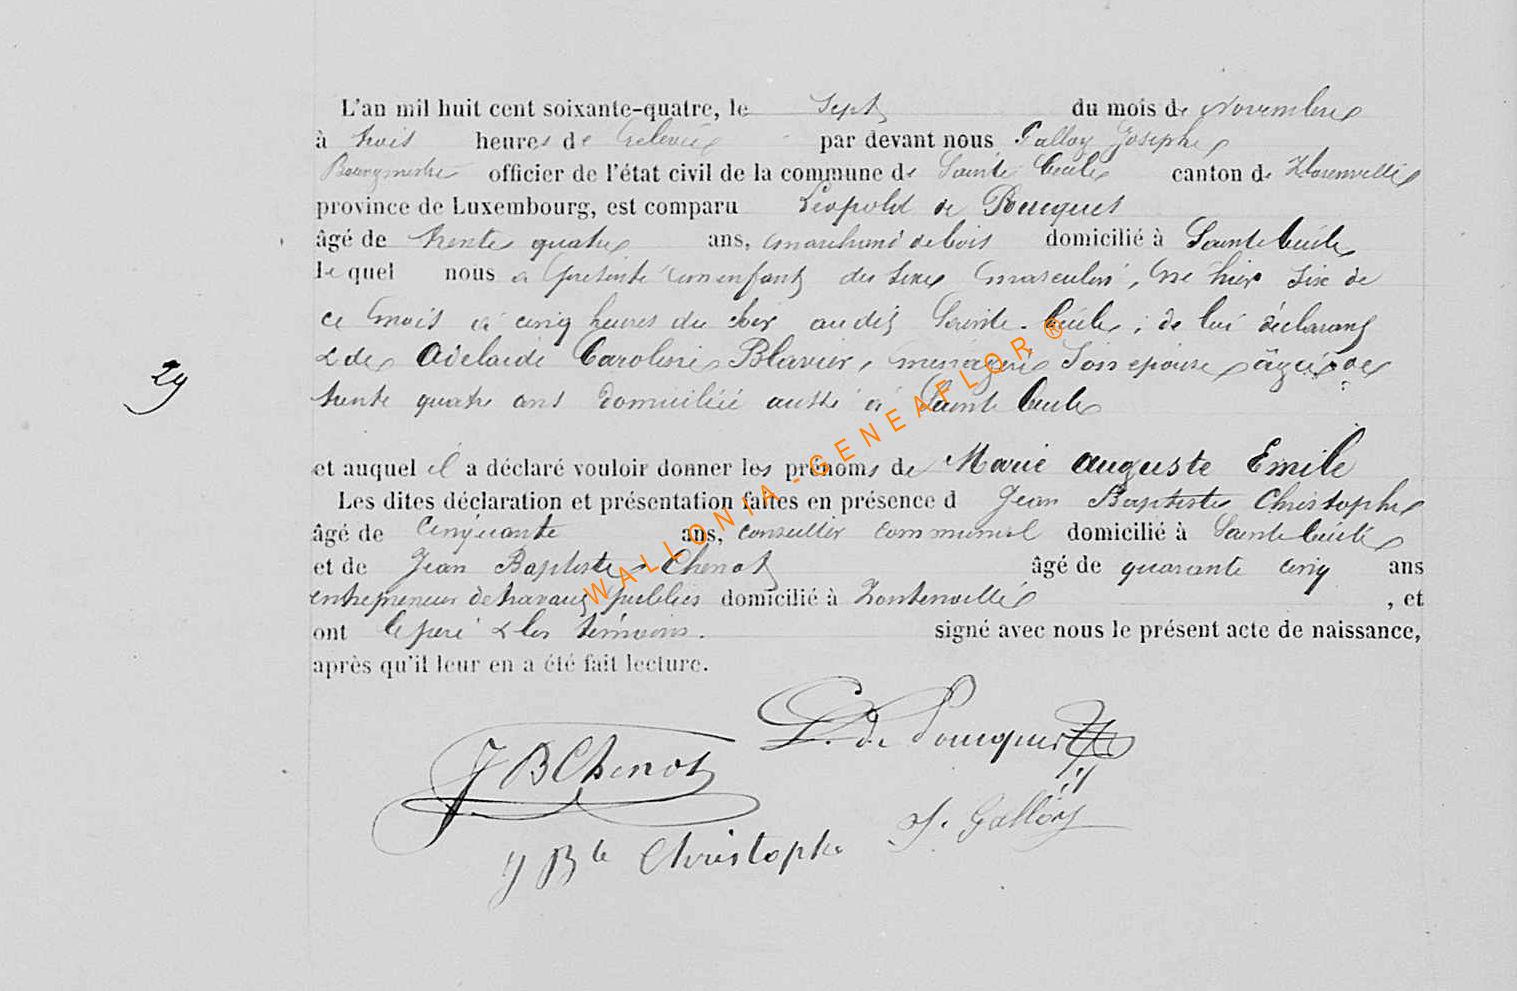 L'an mil huit cent soixante-quatre, le sept du mois de Novembre
à trois heures de relevée par devant nous Galloy Joseph
Bourgmestre officier de l'état civil de la commune de Sainte Cécile canton de Florenville
province de Luxembourg, est comparu Léopold de Poucques
âgé de trente quatre ans, marchand de bois domicilié à Sainte Cécile
le quel nous a présenté un enfant du sexe masculin, né hier six de
ce mois à cinq heures du soir audit Sainte-Cécile, de lui déclarant
& de Adelaïde Caroline Blavier, ménagère son épouse âgée de
29
trente quatre ans domiciliée aussi à Sainte Cécile
et auquel il a déclaré vouloir donner les prénoms de Marie Auguste Emile
Les dites déclaration et présentation faites en présence d Jean Baptiste Christophe
âgé de cinquante ans, conseiller communal domicilié à Sainte Cécile
et de Jean Baptiste Chenot âgé de quarante cinq ans
entrepreneur de travaux publics domicilié à Fontenoille , et
ont le père & les témoins. signé avec nous le présent acte de naissance,
après qu'il leur en a été fait lecture.
L. de Poucques
J B Chenot
J. Galloy
J Bte Christophe
WALLONIA-GENEAFLOR ®